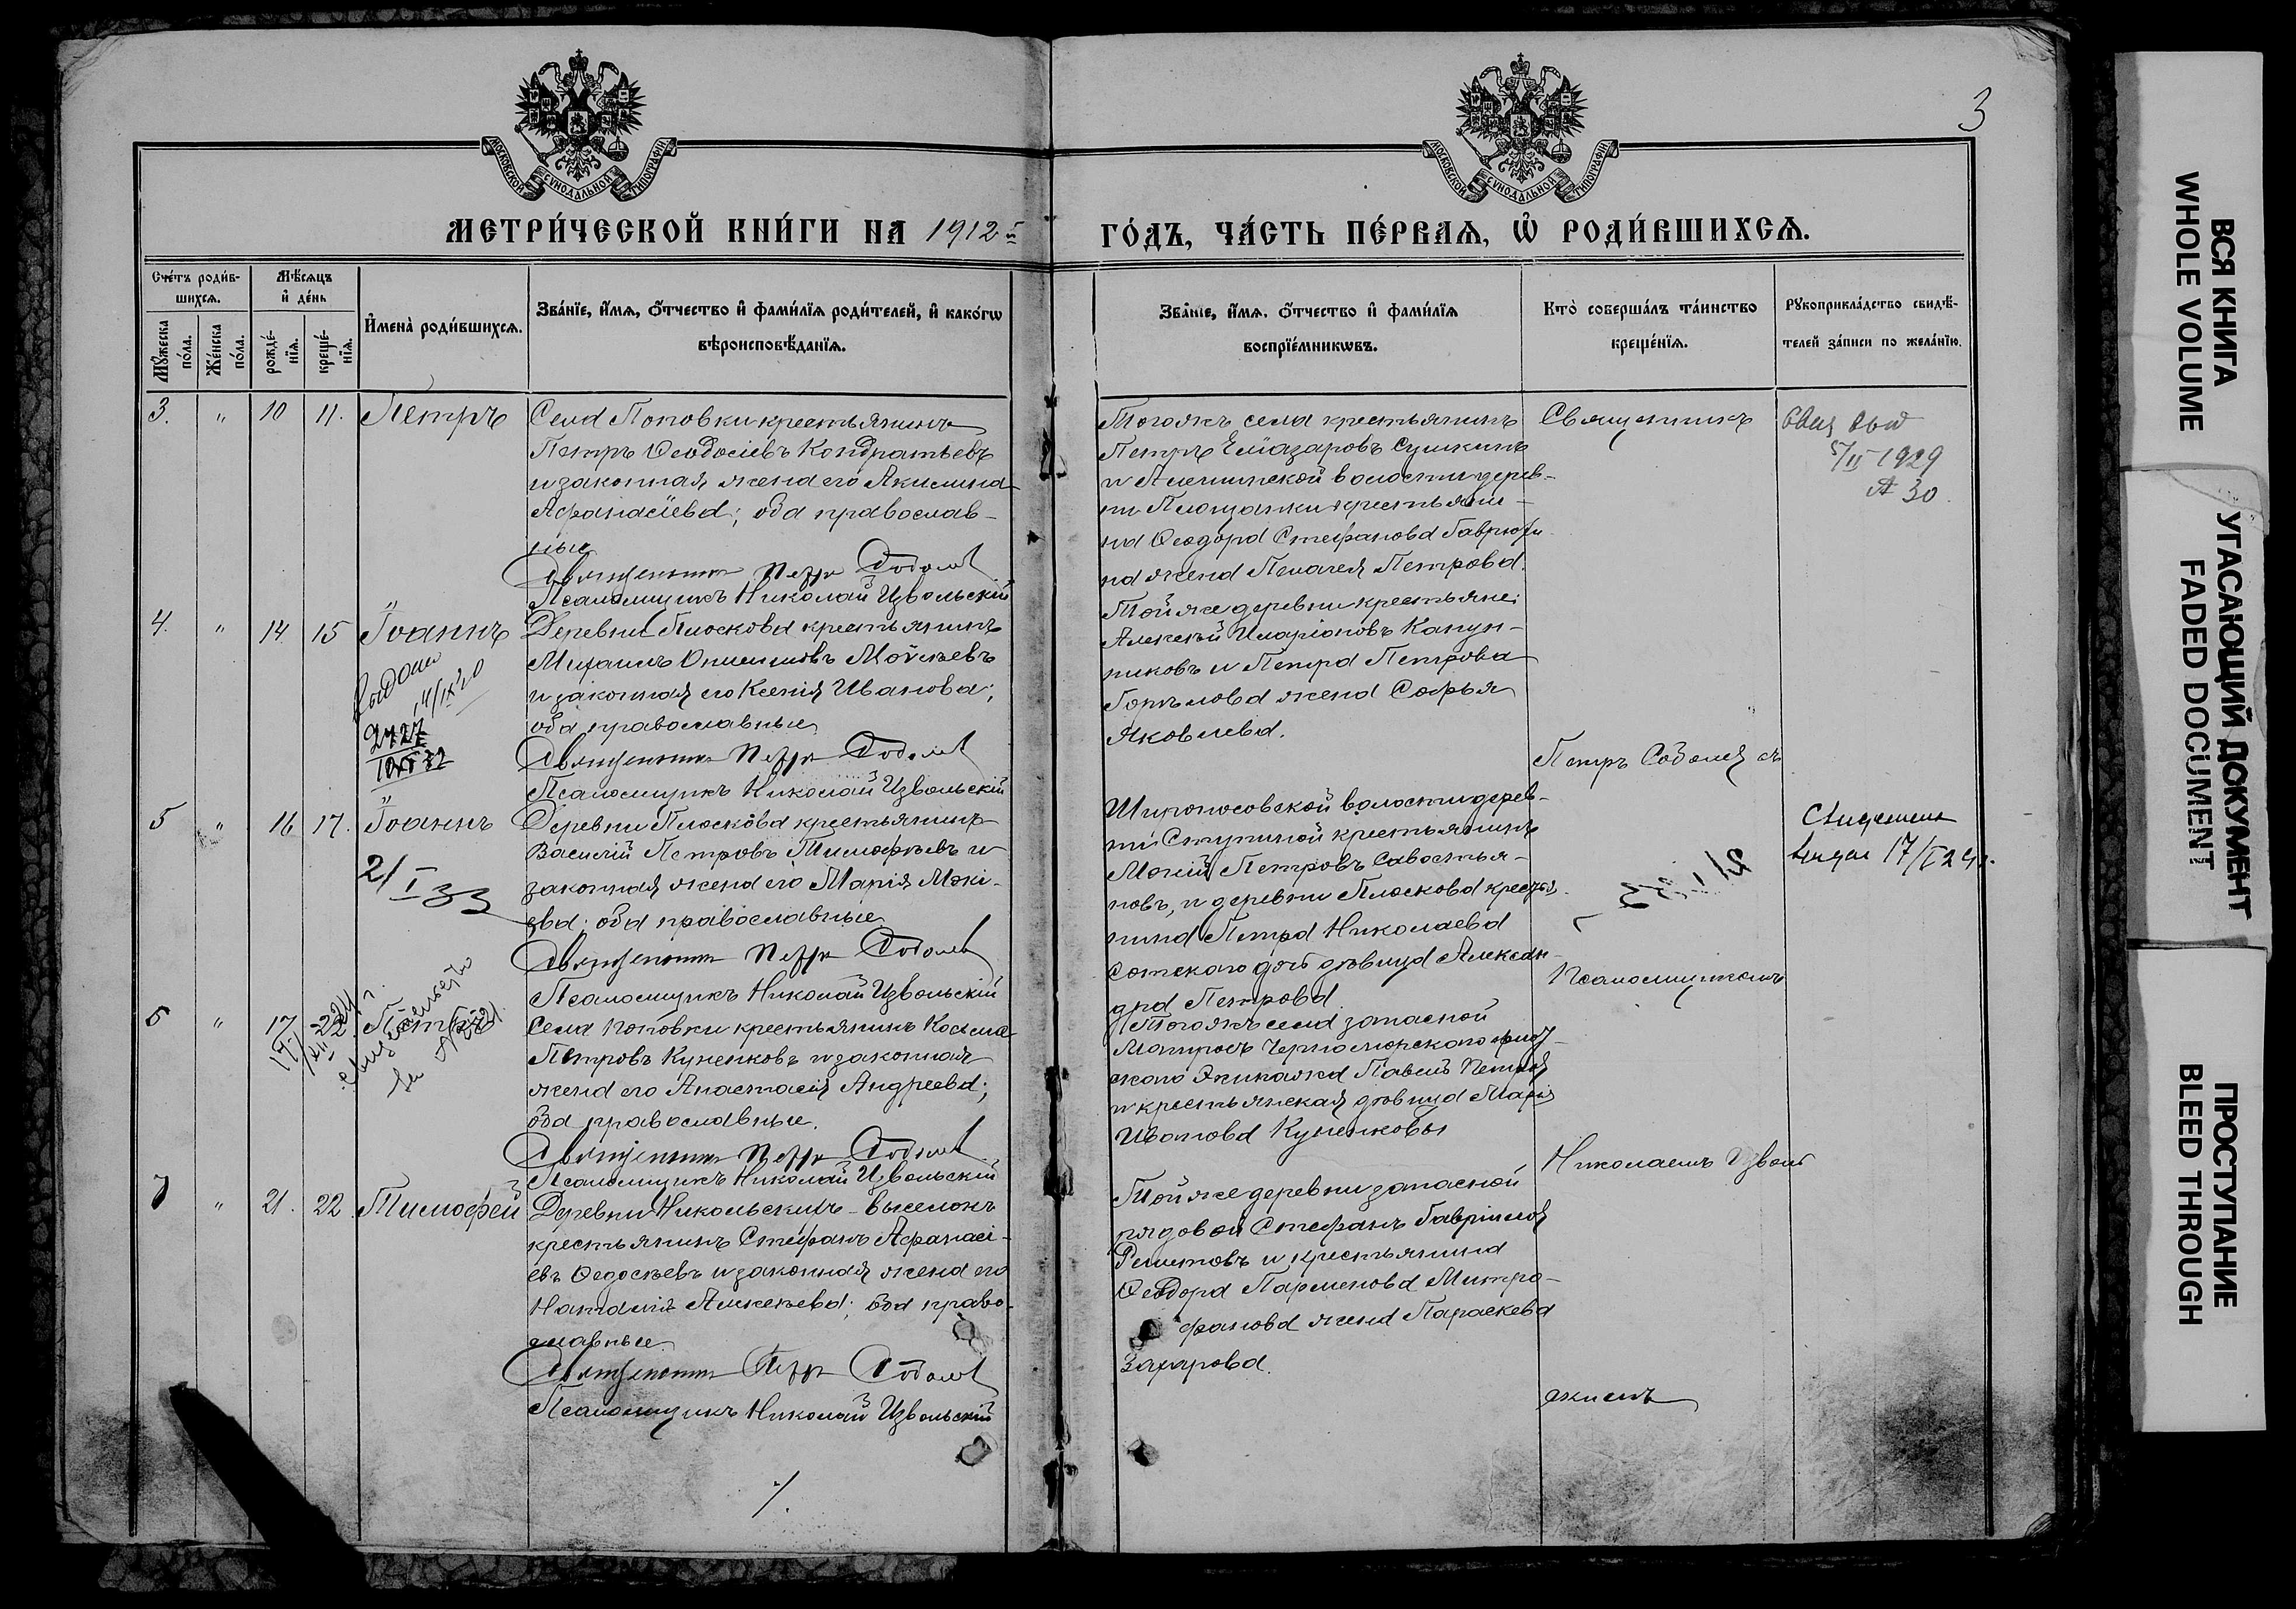 3
МОСКОВСКОЙ СУНОДАЛЬНОЙ ТИПОГРАФІИ
МОСКОВСКОЙ СУНОДАЛЬНОЙ ТИПОГРАФІИ
МЕТРИ́ЧЕСКОЙ КНИ́ГИ НА 1912 й
ГО́ДЪ, ЧА́СТЬ ПЕ́РВАЯ, Ѡ҆ РОДИ́ВШИХСЯ.
Сче́тъ роди́в-
шихся.
Мѣ́сяцъ
и҆ де́нь
Мꙋ́жеска
по́ла.
Же́нска
по́ла.
рожде́-
нїя.
креще́-
нїя.
И҆мена̀ роди́вшихся.
Зва́нїе, и҆́мя, ѻ҆́тчество и҆ фами́лїя роди́телей, и҆ како́гѡ
вѣроисповѣ́данїя.
Зва́нїе, и҆́мя, ѻ҆́тчество и҆ фами́лїя
воспрїе́мникѡвъ.
Кто̀ соверша́лъ та́инство
креще́нїя.
Рꙋкоприкла́дство свидѣ́-
телей за́писи по жела́нїю.
3. " 10 11. Петръ
Села Поповки крестьянинъ
Петръ Ѳеодосіевъ Кондратьевъ
и законная жена его Акилина
Аѳанасіева; оба православ-
ные
Священникъ Петръ Соболевъ
Псаломщикъ Николай Извольскій
Тогожъ села крестьянинъ
Петръ Елиазаровъ Сушкинъ
и волости дерев-
ни крестьяни-
на Ѳеодора Стефанова
на жена Пелагея Петрова.
Священникъ
5/II 1929
№ 30.
4. " 14 15 Іоаннъ
Деревни Плоскова крестьянинъ
Михаилъ Онисимовъ Моисѣевъ
и законная его Ксенія Иванова;
оба православные
Священникъ Петръ Соболевъ
Псаломщикъ Николай Извольскій
Той же деревни крестьяне:
Алексѣй Иларіоновъ Капун-
никовъ и Петра Петрова
Горѣлова жена Софья
Яковлева.
Петръ Соболевъ съ
5 " 16 17. Іоаннъ
2/I 33
Деревни Плоскова крестьянинъ
Василій Петровъ Тимоѳѣевъ и
законная жена его Марія Мокі-
ева; оба православные
Священникъ Петръ Соболевъ
Псаломщикъ Николай Извольскій
Широносовской волости дерев-
ни Ступиной крестьянинъ
Мокій Петровъ Савостья-
новъ, и деревни Плоскова крестья
нина Петра Николаева
Сотскаго дочь дѣвица Алексан-
дра Петрова
Псаломщикомъ
17/I 24 г.
6 " 17 22 Петръ
Села Поповки крестьянинъ Косьма
Петровъ Куненковъ и законная
жена его Анастасія Андреева;
оба православные.
Священникъ Петръ Соболевъ
Псаломщикъ Николай Извольскій
Тогожъ села запасной
Матросъ Черноморскаго флот
скаго Экипажа Павелъ Петровъ
и крестьянская дѣвица Марія
Иванова Куненковы
Николаемъ Изволь
7 " 21. 22 Тимоѳей
Деревни Никольскихъ-Выселокъ
крестьянинъ Стефанъ Аѳанасі-
евъ Ѳедосѣевъ и законная жена его
Наталія Алексѣева; оба право-
славные.
Священникъ Петръ Соболевъ
Псаломщикъ Николай Извольскій
Той же деревни запасной
рядовой Стефанъ Гавріиловъ
Решетовъ и крестьянина
Ѳеодора Парменова Митро-
фанова жена Параскева
Захарова.
скимъ
ВСЯ КНИГА
WHOLE VOLUME
УГАСАЮЩИЙ ДОКУМЕНТ
FADED DOCUMENT
ПРОСТУПАНИЕ
BLEED THROUGH